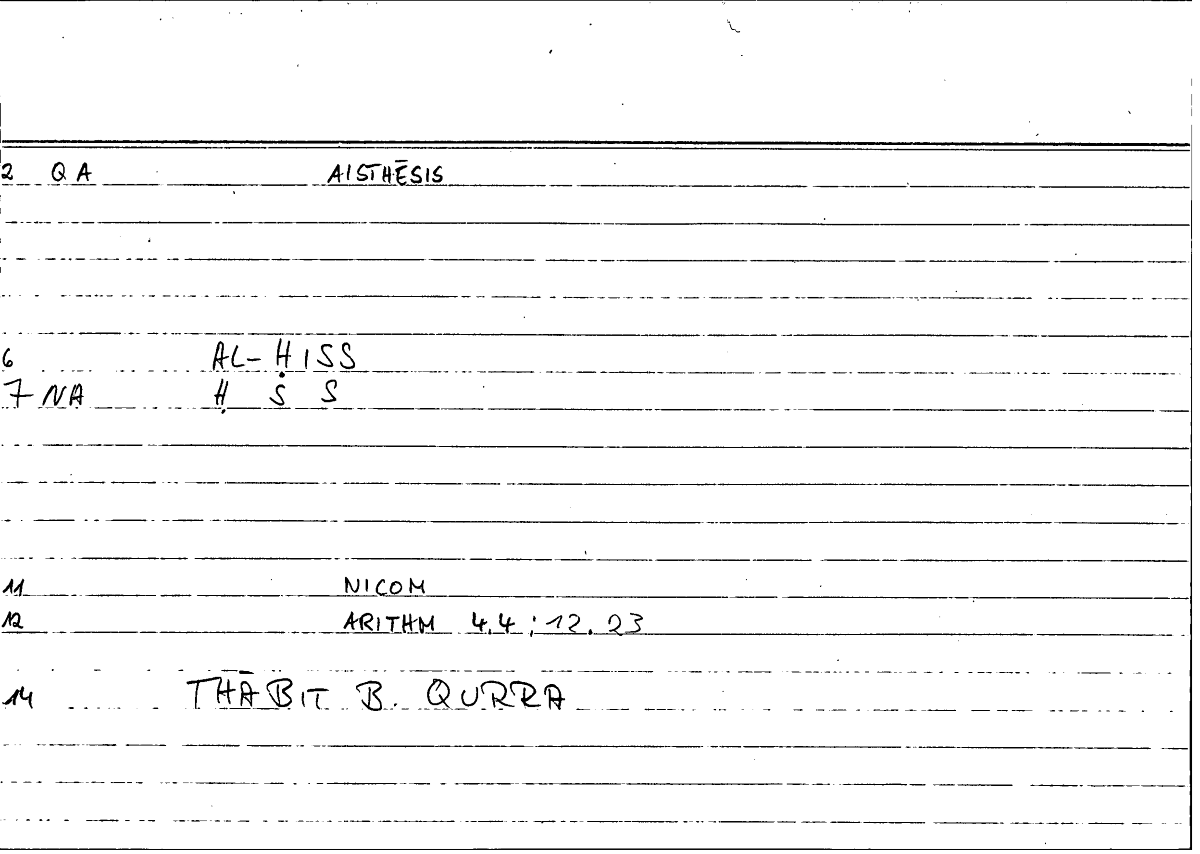 2 QA AISTHĒSIS
6 AL-ḤISS
7 NA Ḥ S S
11 NICOM
12 ARITHM 4.4; 12.23
14 THĀBIT B. QURRA